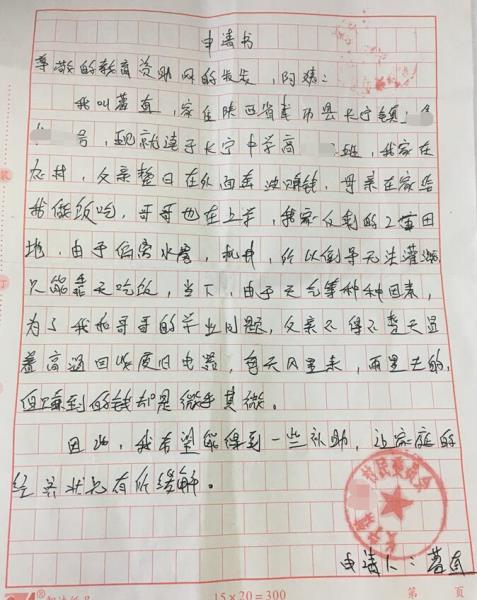 申请书
尊敬的教育资助网的叔叔，阿姨：
我叫董直，家住陕西省武功县长宁镇
号，现就读于长宁中学高 班，我家在
农村，父亲整日在外面奔波赚钱，母亲在家给
我做饭吃，哥哥也在上学，我家仅剩的2亩田
地，由于偏离水渠，机井，所以倒导无法灌溉
只能靠天吃饭，当下，由于天气等种种因素，
为了我和哥哥的学业问题，父亲不得不整天冒
着高温回收废旧电器，每天风里来，雨里去的，
但赚到的钱却是微乎其微。
因此，我希望能得到一些补助，让家庭的
经济状况有所缓解。
村民委员会
申请人：董直
15×20=300
第 页